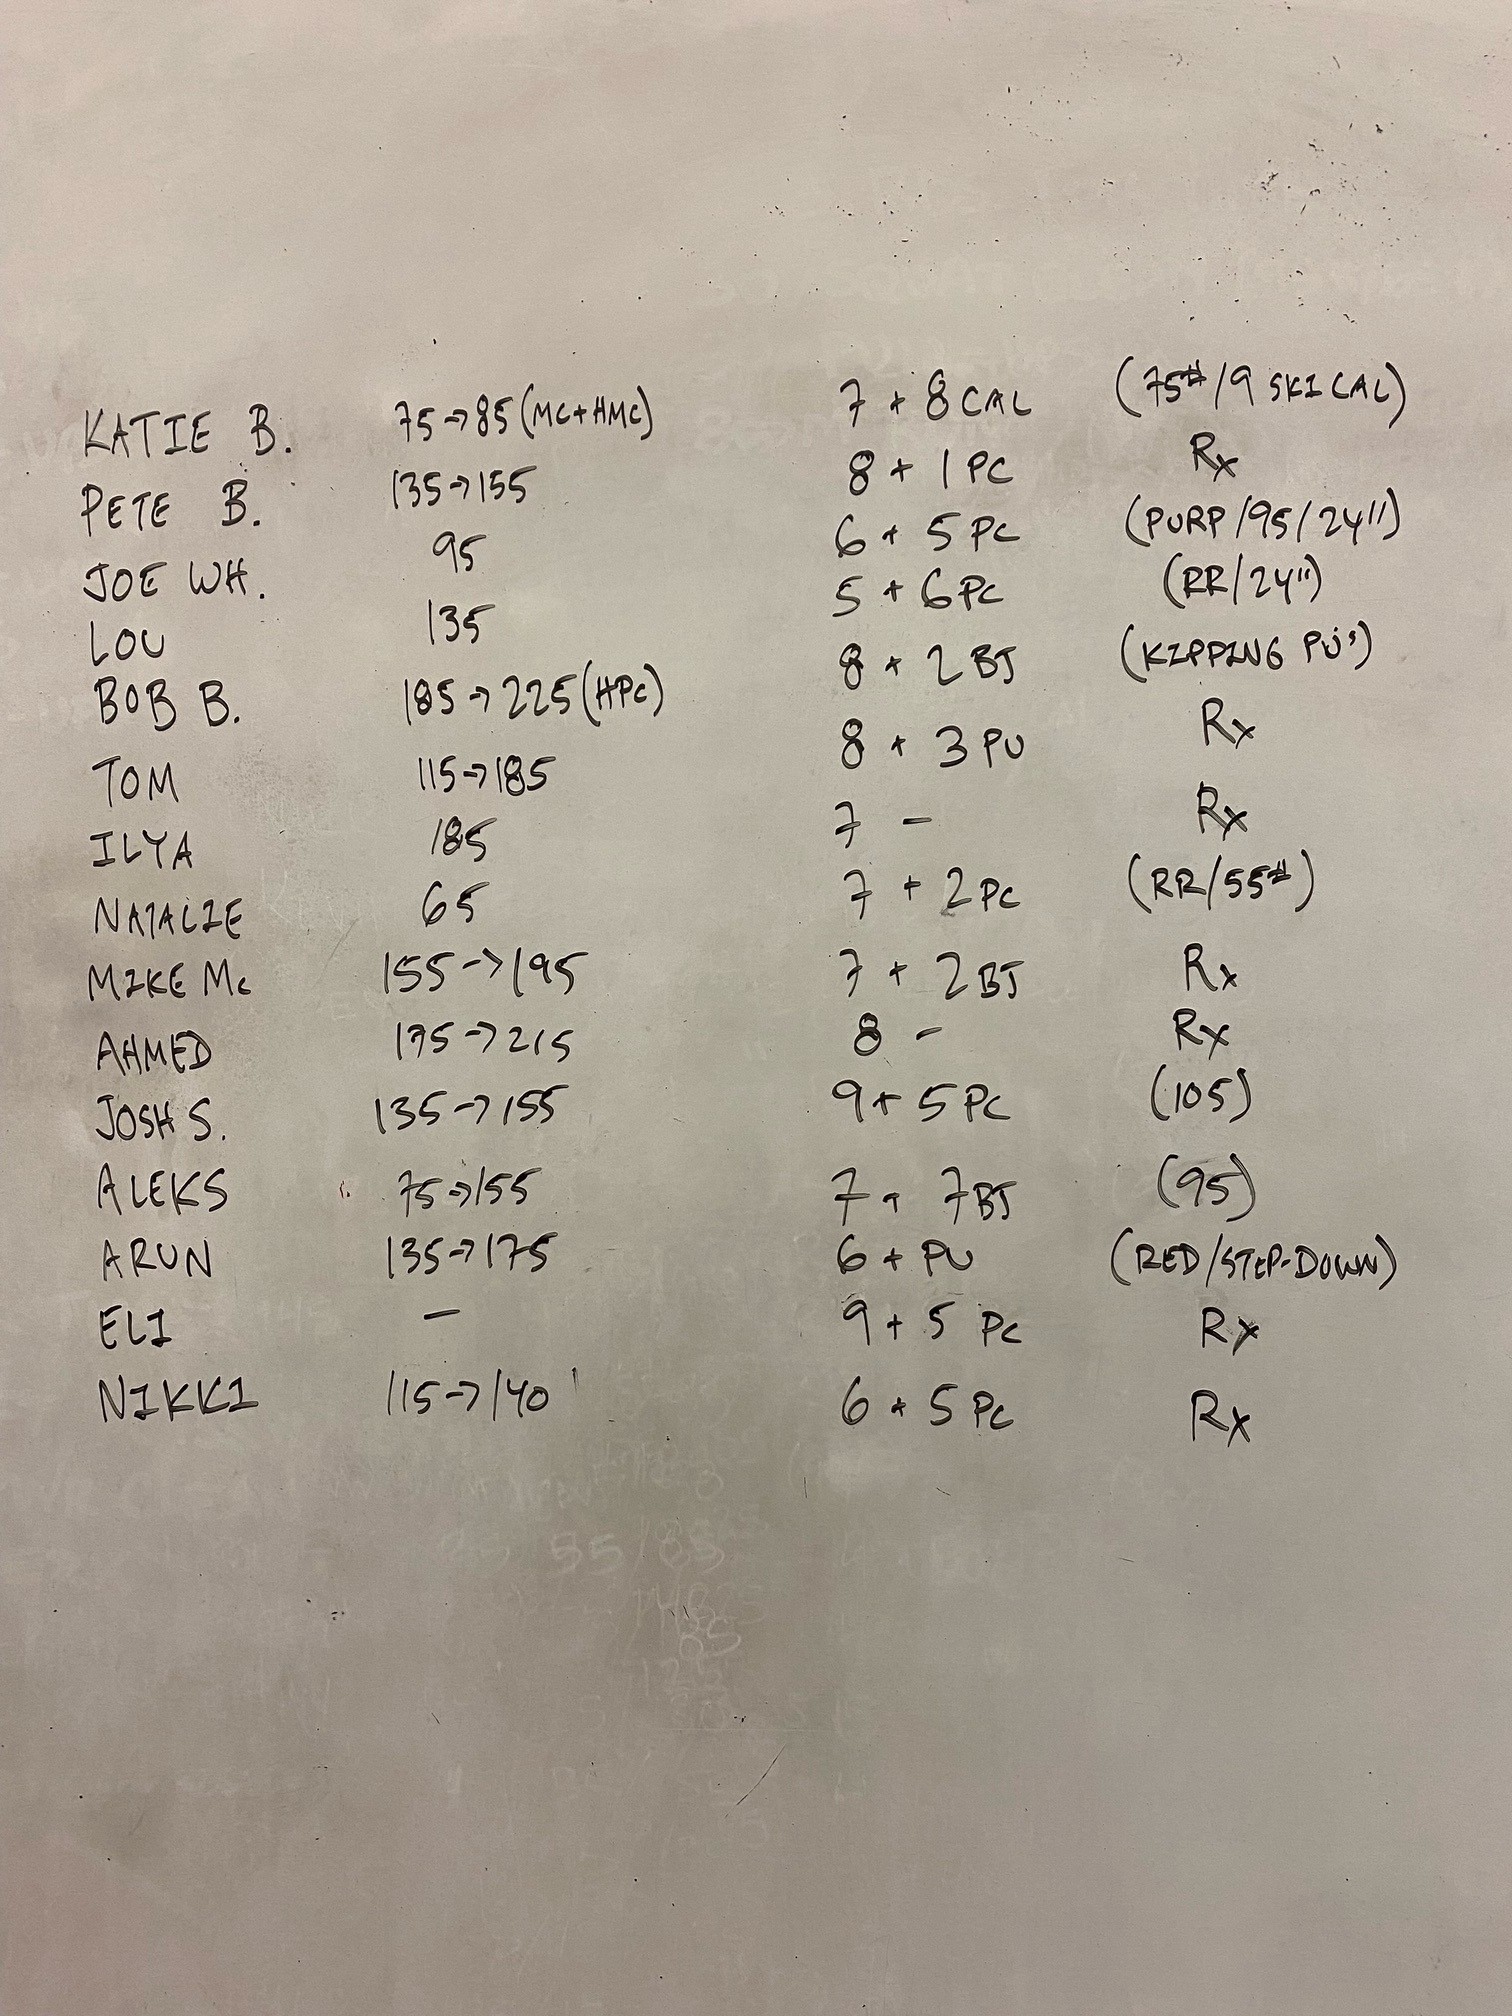 KATIE B. 75→85 (MC+HMC) 7 + 8 CAL (75#/9 SKI CAL)
PETE B. 135→155 8 + 1 PC Rx
JOE WH. 95 6 + 5 PC (PURP/95/24")
LOU 135 5 + 6 PC (RR/24")
BOB B. 185→225 (HPC) 8 + 2 BJ (KIPPING PU's)
TOM 115→185 8 + 3 PU Rx
ILYA 185 7 - Rx
NATALIE 65 7 + 2 PC (RR/55#)
MIKE Mc 155→195 7 + 2 BJ Rx
AHMED 175→215 8 - Rx
JOSH S. 135→155 9 + 5 PC (105)
ALEKS 75→155 7 + 7 BJ (95)
ARUN 135→175 6 + PU (RED/STEP-DOWN)
ELI - 9 + 5 PC Rx
NIKKI 115→140 6 + 5 PC Rx